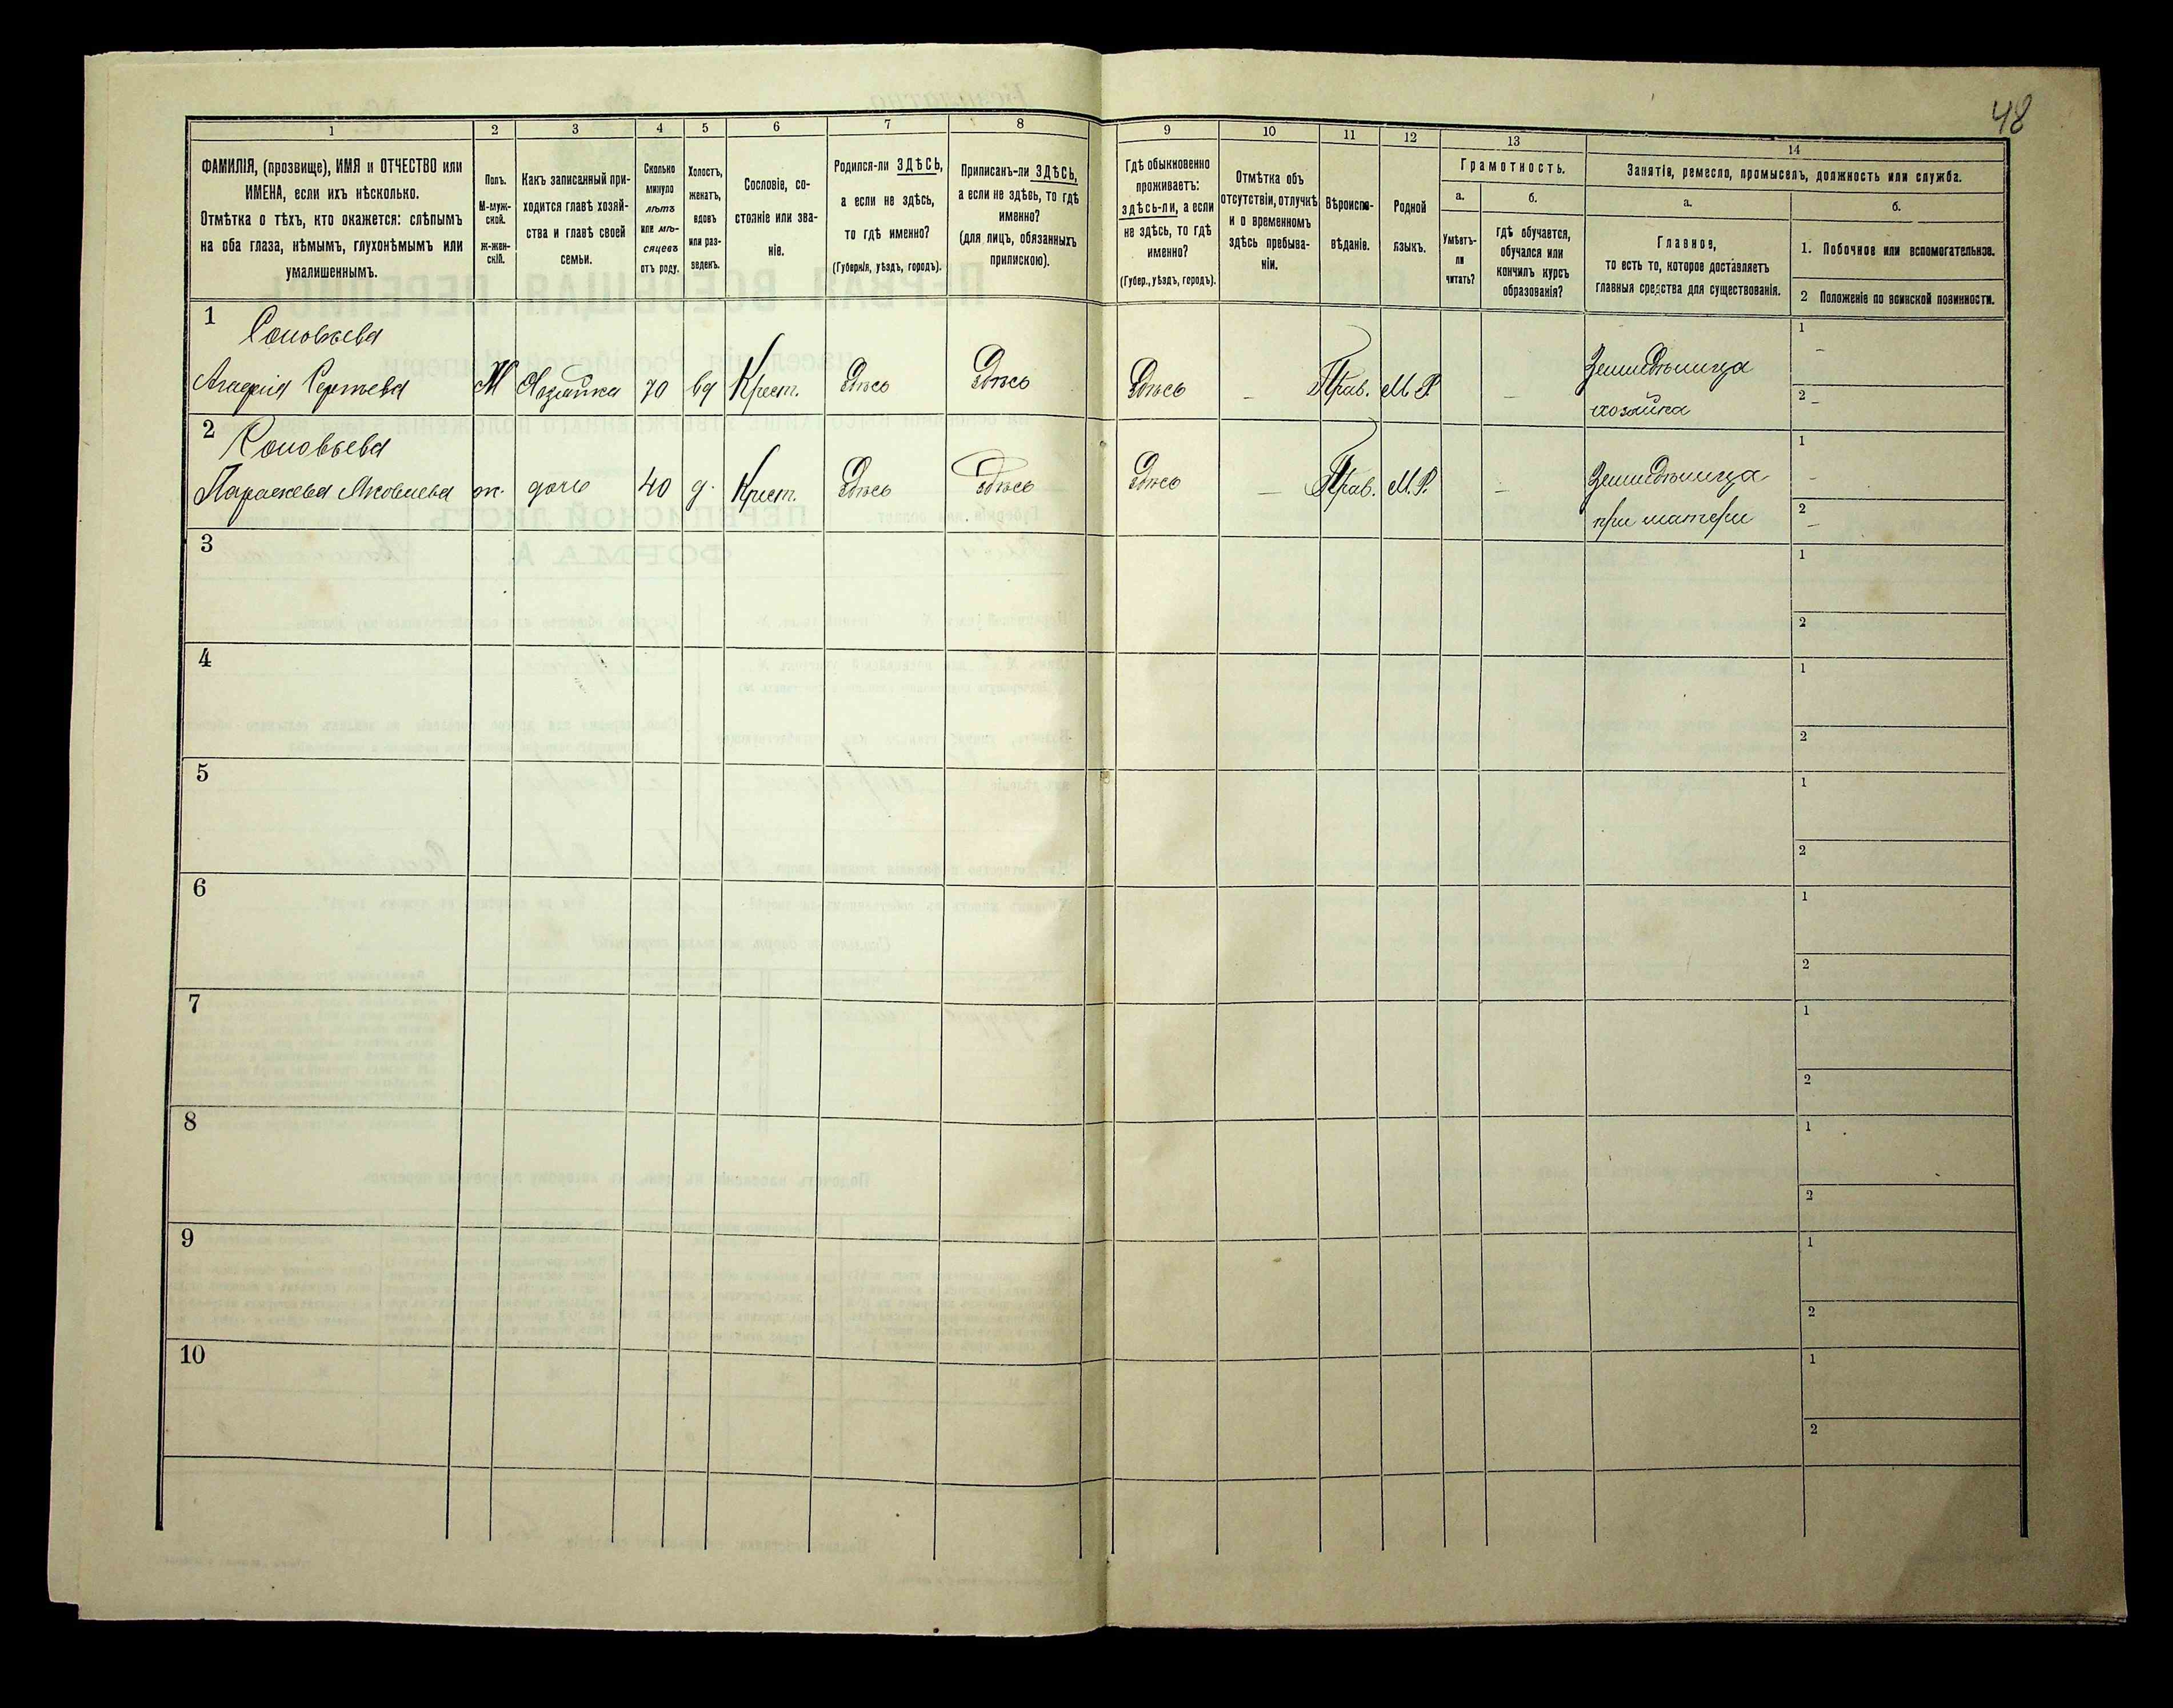 48
1
2
3
4
5
6
7
8
9
10
11
12
13
14
ФАМИЛІЯ, (прозвище), ИМЯ и ОТЧЕСТВО или
ИМЕНА, если ихъ нѣсколько.
Отмѣтка о тѣхъ, кто окажется: слѣпымъ
на оба глаза, нѣмымъ, глухонѣмымъ или
умалишеннымъ.
Полъ.
М-муж-
ской.
Ж-жен-
скій.
Какъ записанный при-
ходится главѣ хозяй-
ства и главѣ своей
семьи.
Сколько
минуло
лѣтъ
или мѣ-
сяцевъ
отъ роду.
Холостъ,
женатъ,
вдовъ
или раз-
веденъ.
Сословіе, со-
стояніе или зва-
ніе.
Родился-ли ЗДѢСЬ,
а если не здѣсь,
то гдѣ именно?
(Губернія, уѣздъ, городъ).
Приписанъ-ли ЗДѢСЬ,
а если не здѣсь, то гдѣ
именно?
(для лицъ, обязанныхъ
припискою).
Гдѣ обыкновенно
проживаетъ:
здѣсь-ли, а если
не здѣсь, то гдѣ
именно?
(Губер., уѣздъ, городъ).
Отмѣтка объ
отсутствіи, отлучкѣ
и о временномъ
здѣсь пребыва-
ніи.
Вѣроиспо-
вѣданіе.
Родной
языкъ.
Грамотность.
а.
б.
Умѣетъ-
ли
читать?
гдѣ обучается,
обучался или
кончилъ курсъ
образованія?
Занятіе, ремесло, промыселъ, должность или служба.
а.
б.
Главное,
то есть то, которое доставляетъ
главныя средства для существованія.
1. Побочное или вспомогательное.
2 Положеніе по воинской повинности.
1
Соловьева
Агафія Сергѣева
Хозяйка
70
вд
Крест.
Здѣсь
Здѣсь
Здѣсь
–
Прав.
М. Р.
–
Земледѣлица
хозяйка
1
–
2 –
2
Соловьева
Параскева Яковлева
ж.
дочь
40
д.
Крест.
Здѣсь
Здѣсь
Здѣсь
–
Прав.
М. Р.
–
Земледѣлица
при матери
1
–
2
–
3
1
2
4
1
2
5
1
2
6
1
2
7
1
2
8
1
2
9
1
2
10
1
2